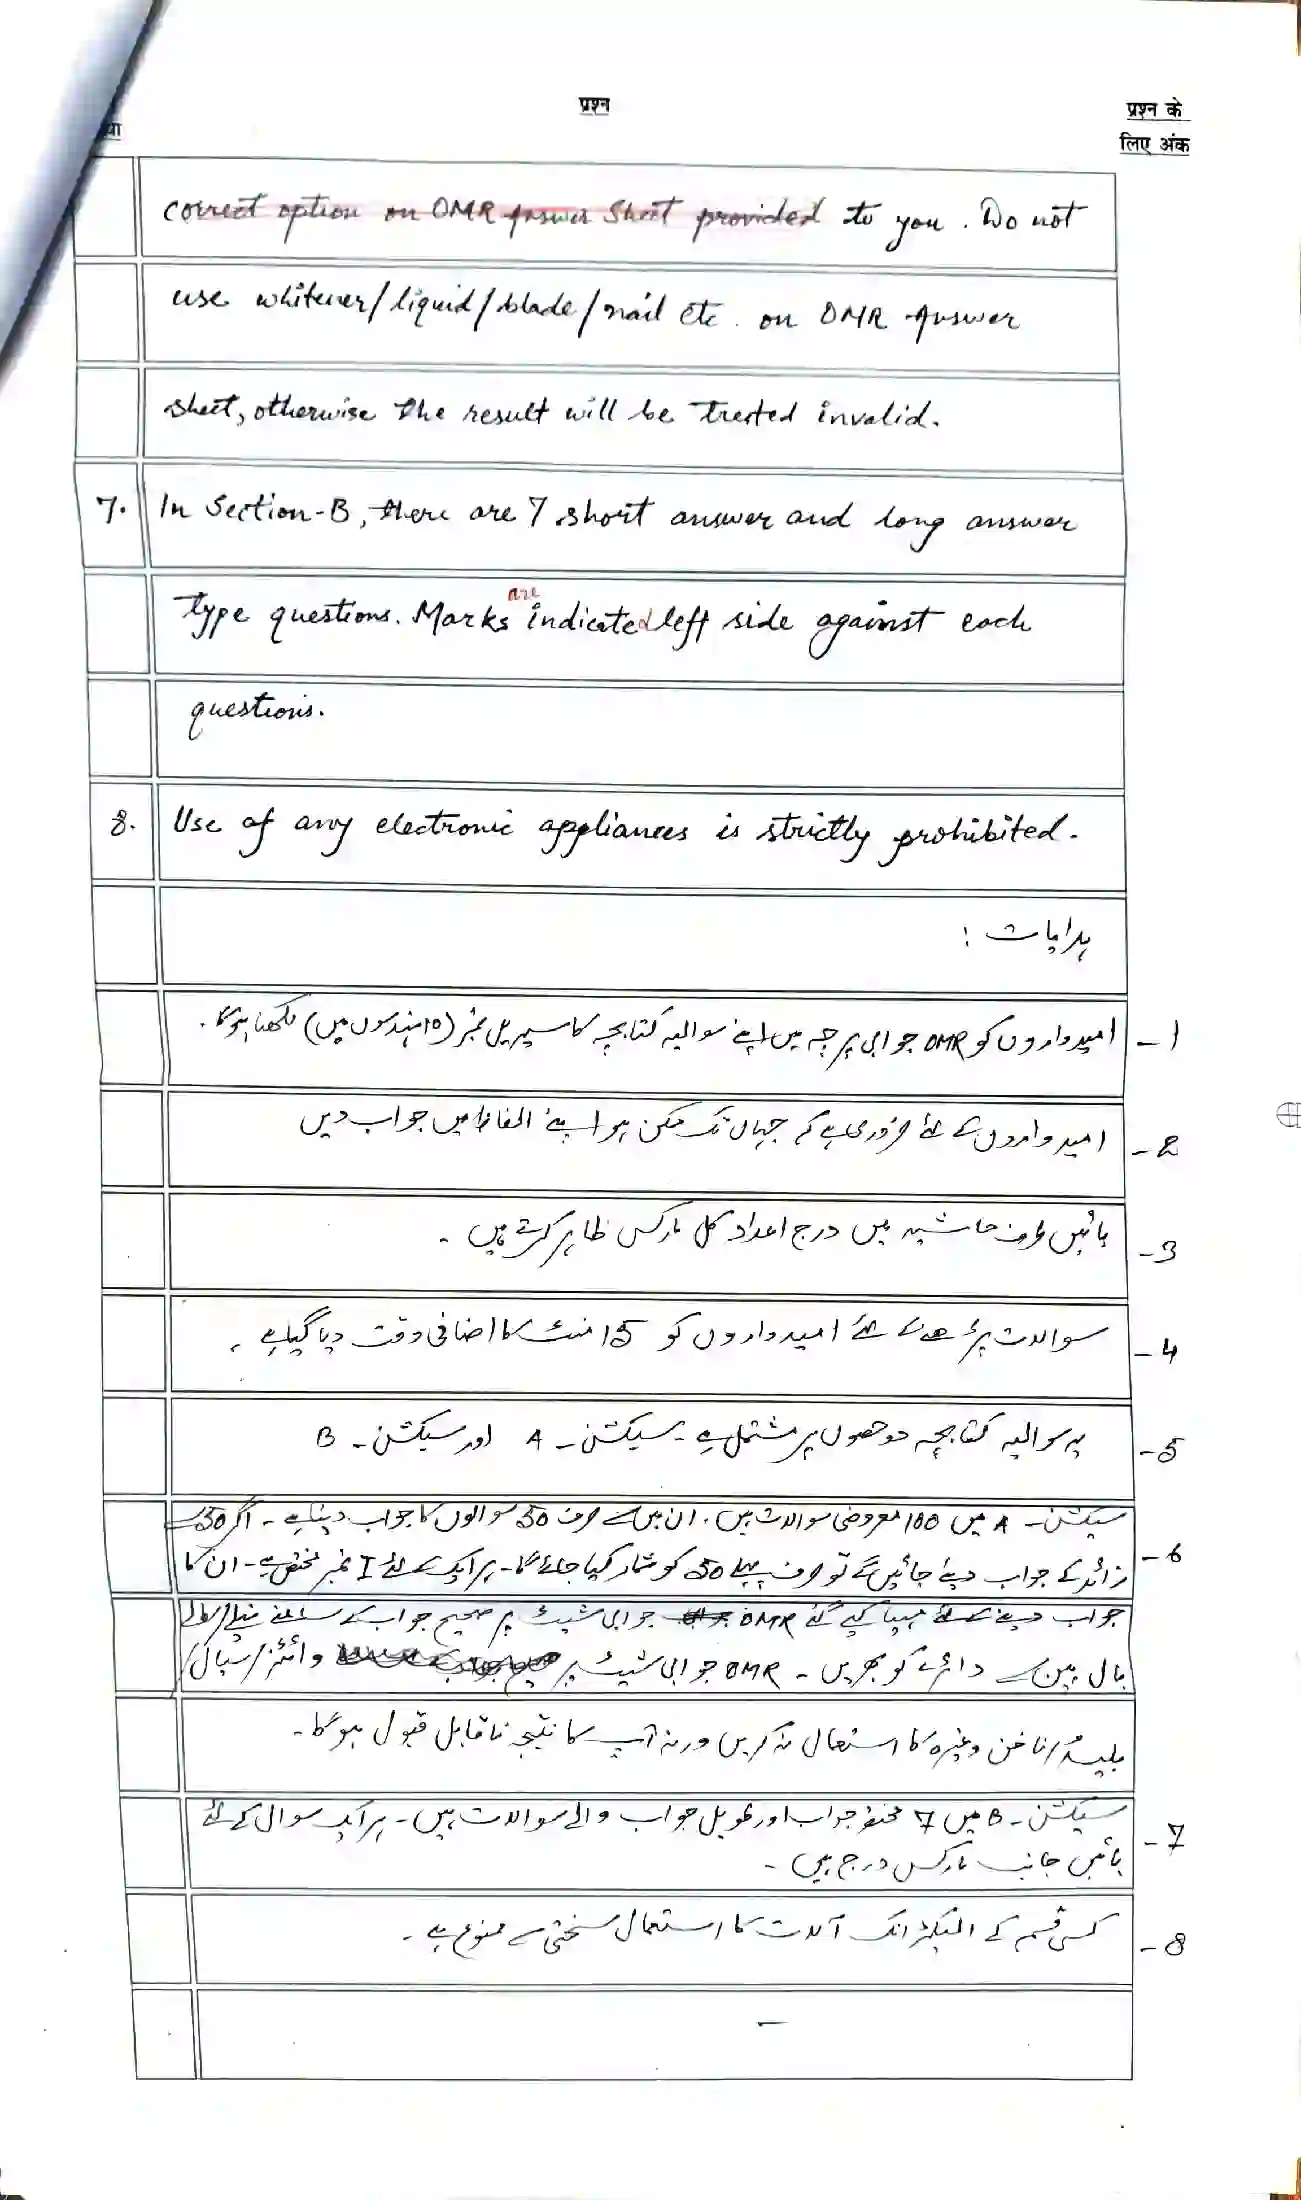 प्रश्न
प्रश्न के
लिए अंक
correct option on OMR Answer Sheet provided to you. Do not
use whitener/liquid/blade/nail etc. on OMR Answer
sheet, otherwise the result will be treated invalid.
7. In Section-B, there are 7 short answer and long answer
are
type questions. Marks indicated left side against each
questions.
8. Use of any electronic appliances is strictly prohibited.
ہدایات :
1- امیدواروں کو OMR جوابی پرچہ میں اپنے سوالیہ کتابچہ کا سیریل نمبر (10 ہندسوں میں) لکھنا ہوگا۔
2- امیدواروں کے لئے ضروری ہے کہ جہاں تک ممکن ہو اپنے الفاظ میں جواب دیں
3- بائیں طرف حاشیہ میں درج اعداد کل مارکس ظاہر کرتے ہیں۔
4- سوالات پڑھنے کے لئے امیدواروں کو 15 منٹ کا اضافی وقت دیا گیا ہے۔
5- یہ سوالیہ کتابچہ دو حصوں پر مشتمل ہے۔ سیکشن۔ A اور سیکشن۔ B
6- سیکشن۔ A میں 100 معروضی سوالات ہیں۔ ان میں سے صرف 50 سوالوں کا جواب دینا ہے۔ اگر 50 سے
زائد کے جواب دیئے جائیں گے تو صرف پہلے 50 کو شمار کیا جائے گا۔ ہر ایک کے لئے 1 نمبر مختص ہے۔ ان کا
جواب دینے کے لئے مہیا کیے گئے OMR جوابی شیٹ پر صحیح جواب کے سامنے نیلے/کالے
بال پین سے دائرے کو بھریں۔ OMR جوابی شیٹ پر وائٹنر/سیال/
بلیڈ/ناخن وغیرہ کا استعمال نہ کریں ورنہ آپ کا نتیجہ ناقابل قبول ہوگا۔
7- سیکشن۔ B میں 7 مختصر جواب اور طویل جواب والے سوالات ہیں۔ ہر ایک سوال کے لئے
بائیں جانب مارکس درج ہیں۔
8- کسی قسم کے الیکٹرانک آلات کا استعمال سختی سے ممنوع ہے۔